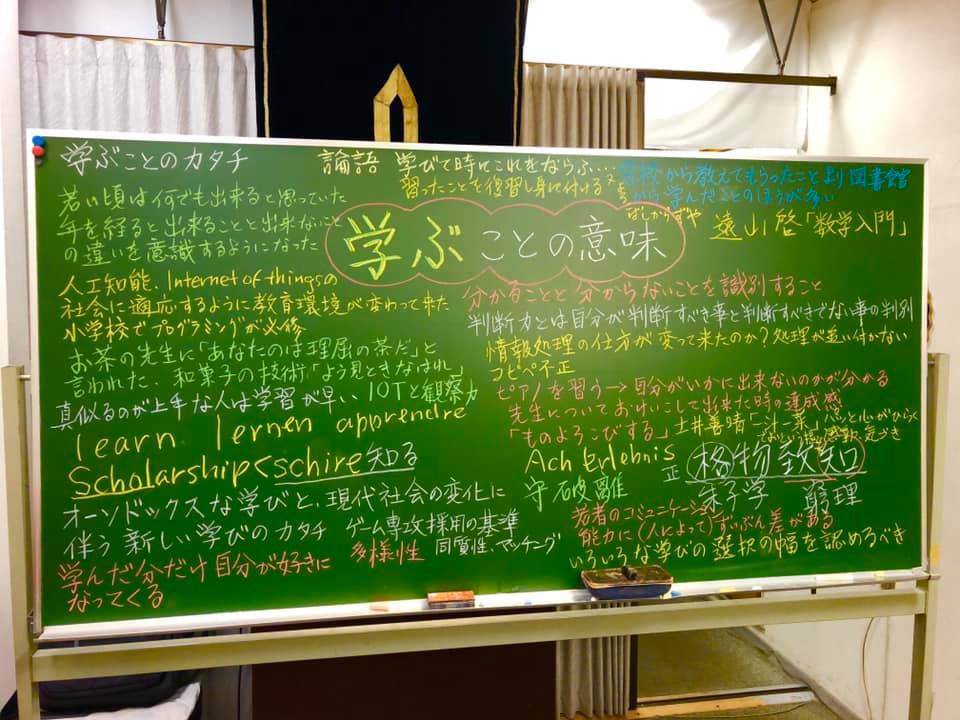 学ぶことのカタチ
論語 学びて時にこれをならふ…
習ったことを復習し身に付ける
学校から教えてもらったことより図書館
から学んだことのほうが多い
はしからずや
遠山啓「数学入門」
若い頃は何でも出来ると思っていた
年を経ると出来ることと出来ないこと
の違いを意識するようになった
学ぶことの意味
人工知能、Internet of thingsの
社会に適応するように教育環境が変わって来た
小学校でプログラミングが必修
お茶の先生に「あなたのは理屈の茶だ」と
言われた、和菓子の技術「よう見ときなはれ」
真似るのが上手な人は学習が早い IOTと観察力
learn lernen apprendre
Scholarship<schire知る
オーソドックスな学びと、現代社会の変化に
伴う新しい学びのカタチ
ゲーム専攻採用の基準
多様性 同質性、マッチング
学んだ分だけ自分が好きに
なってくる
分かることと分からないことを識別すること
判断力とは自分が判断すべき事と判断すべきでない事の判別
情報処理の仕方が変って来たのか?処理が追い付かない
コピペ不正
ピアノを習う→自分がいかに出来ないのかが分かる
先生についておけいこして出来た時の達成感
「ものよろこびする」土井善晴「一汁一菜」
Ach Erlebnis
正 格物致知
守破離
朱子学 窮理
若者のコミュニケーション
能力に(人によって)ずいぶん差がある
いろいろな学びの選択の幅を認めるべき